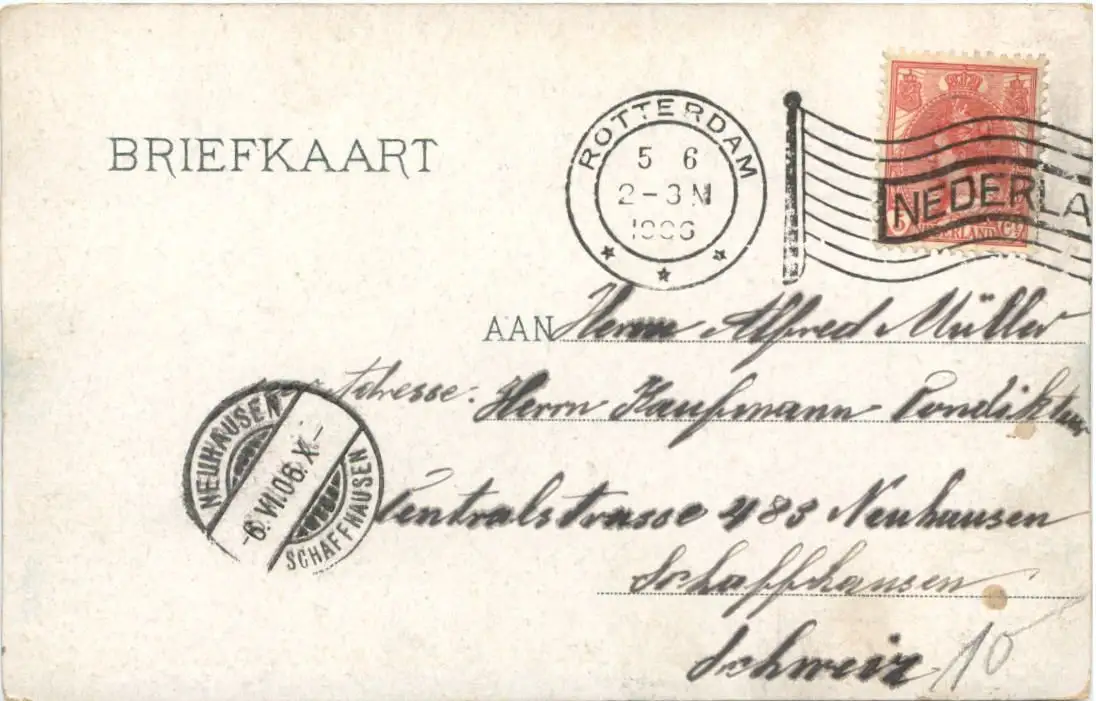 BRIEFKAART
ROTTERDAM
5 6
2-3 N
1906
NEDERLA
5 NEDERLAND Ct
AAN Herrn Alfred Müller
Adresse: Herrn Kaufmann
NEUHAUSEN
-6.VI.06.X-
SCHAFFHAUSEN
Centralstrasse 483 Neuhausen
Schaffhausen
Schweiz
10